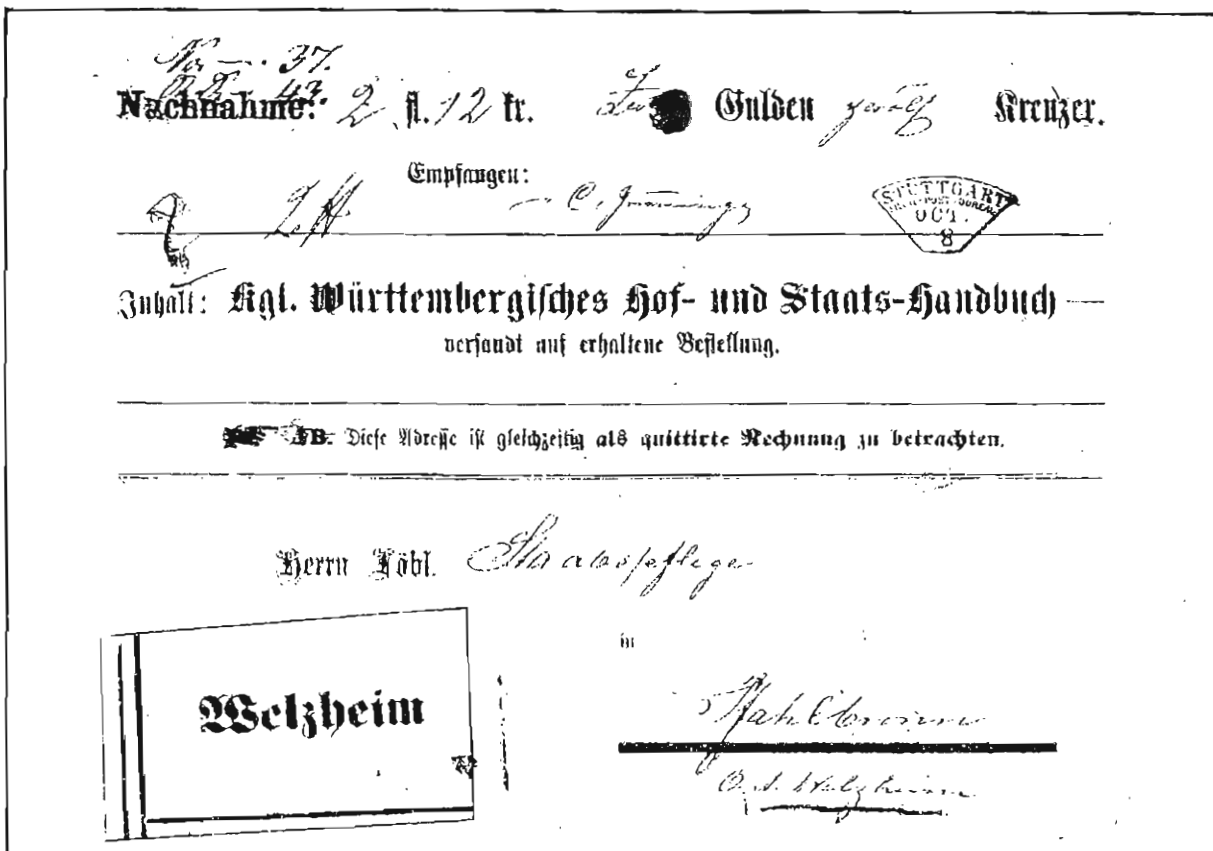 No 37.
43.
Nachnahme: 2 fl. 12 kr. Gulden zwölf Kreuzer.
Empfangen:
STUTTGART
OCT.
8
Inhalt: Kgl. Württembergisches Hof- und Staats-Handbuch
versandt auf erhaltene Bestellung.
NB. Diese Adresse ist gleichzeitig als quittirte Rechnung zu betrachten.
Herrn Löbl. Staabspflege
in
Welzheim
O. A. Welzheim